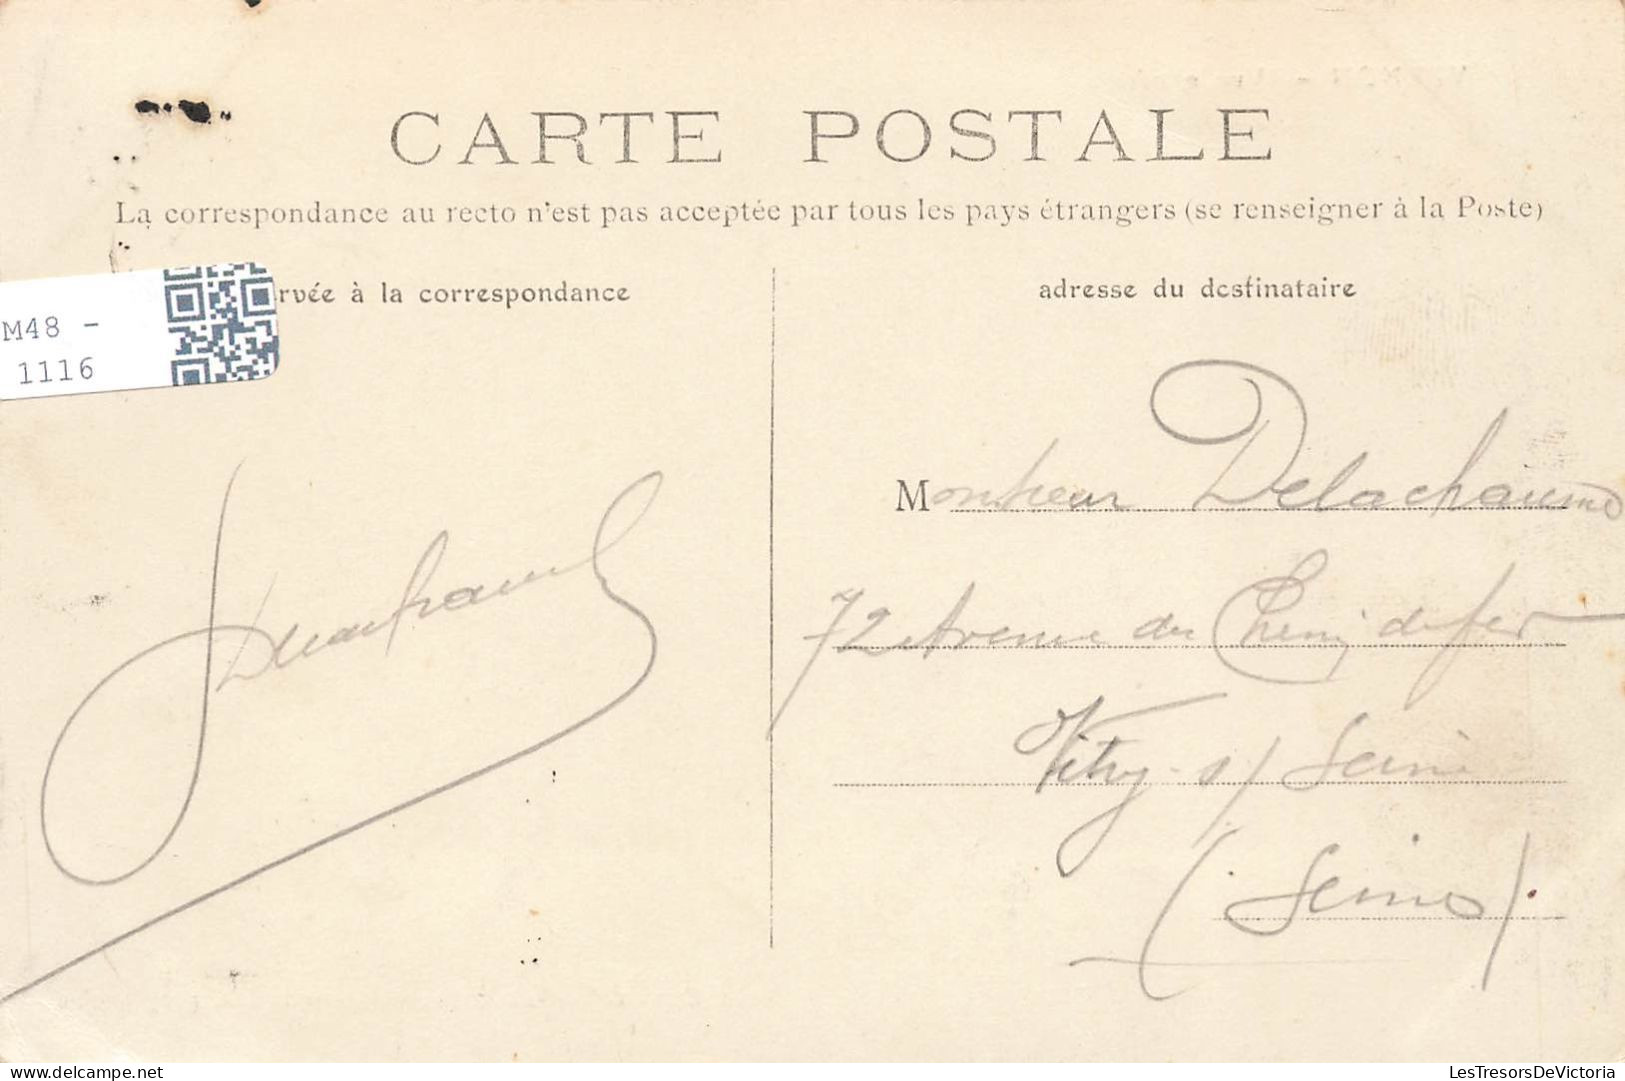 CARTE POSTALE
La correspondance au recto n'est pas acceptée par tous les pays étrangers (se renseigner à la Poste)
rvée à la correspondance
M48 -
1116
adresse du destinataire
Monsieur Delachaume
72 Avenue du Chemin de fer
Vitry s/ Seine
(Seine)
delcampe.net
LesTresorsDeVictoria